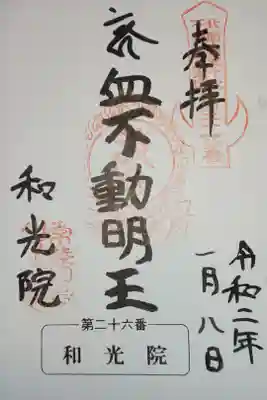 奉拝
血不動明王
和光院
令和二年
一月八日
第二十六番
和光院